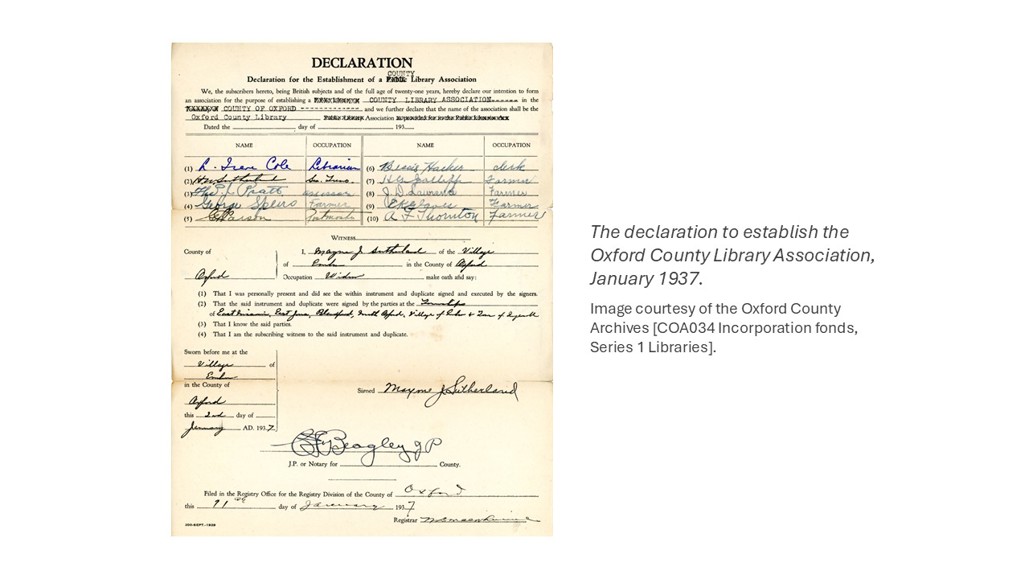 DECLARATION
COUNTY
Declaration for the Establishment of a Library Association
We, the subscribers hereto, being British subjects and of the full age of twenty-one years, hereby declare our intention to form
an association for the purpose of establishing a COUNTY LIBRARY ASSOCIATION------ in the
COUNTY OF OXFORD --------------- and we further declare that the name of the association shall be the
Oxford County Library Association
Dated the day of 193
NAME OCCUPATION NAME OCCUPATION
(1) L. Irene Cole Librarian (6) Bessie clerk
(2) Sutherland (7) Farmer
(3) Pratt assessor (8) J. D. Lawrence Farmer
(4) George Speirs Farmer (9) Farmer
(5) (10) A F Thornton Farmer
WITNESS
County of I, Mayme J. Sutherland of the Village
of Embro in the County of Oxford
Oxford Occupation Widow make oath and say:
(1) That I was personally present and did see the within instrument and duplicate signed and executed by the signers.
(2) That the said instrument and duplicate were signed by the parties at the Townships
of East Nissouri, East Zorra, Blandford, North Oxford, Village of Embro & Town of
(3) That I know the said parties.
(4) That I am the subscribing witness to the said instrument and duplicate.
Sworn before me at the
Village of
Embro
in the County of
Signed Mayme J Sutherland
Oxford
this 2nd day of
January A.D. 1937
Beagley J P
J.P. or Notary for County.
Filed in the Registry Office for the Registry Division of the County of Oxford
this 11 day of January 1937
Registrar
The declaration to establish the
Oxford County Library Association,
January 1937.
Image courtesy of the Oxford County
Archives [COA034 Incorporation fonds,
Series 1 Libraries].